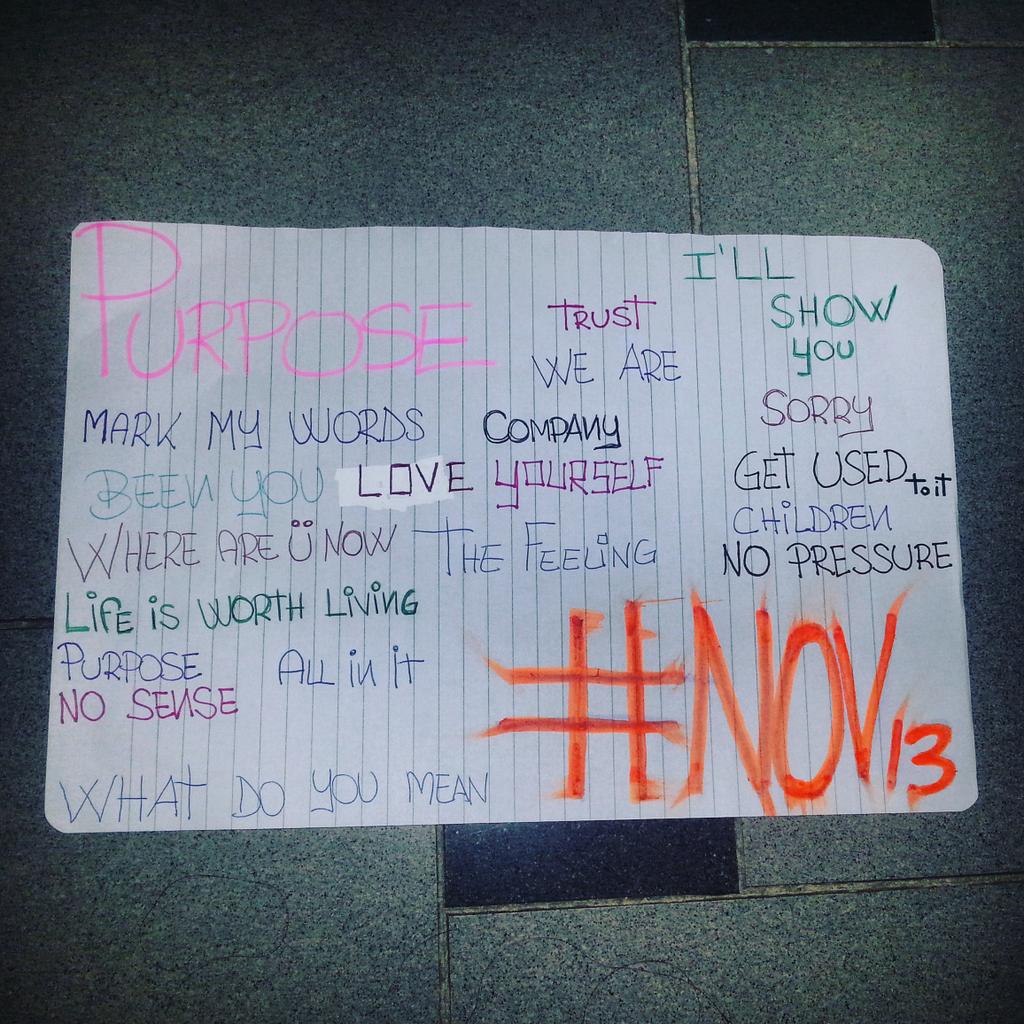 PURPOSE
TRUST
WE ARE
I'LL
SHOW
YOU
MARK MY WORDS
COMPANY
SORRY
BEEN YOU
LOVE YOURSELF
GET USED to it
WHERE ARE Ü NOW
THE FEELING
CHILDREN
NO PRESSURE
LIFE IS WORTH LIVING
PURPOSE
ALL IN IT
NO SENSE
#NOV 13
WHAT DO YOU MEAN